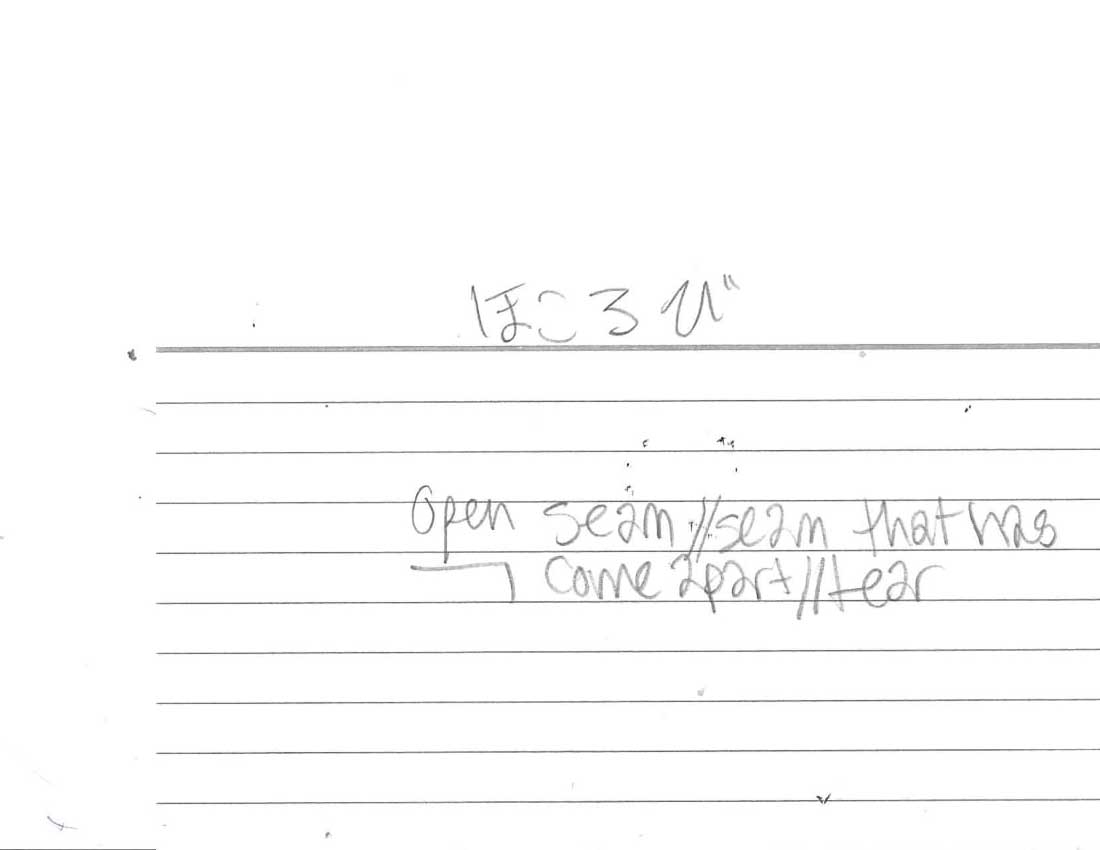 ほころび
Open seam//seam that has
come apart//tear